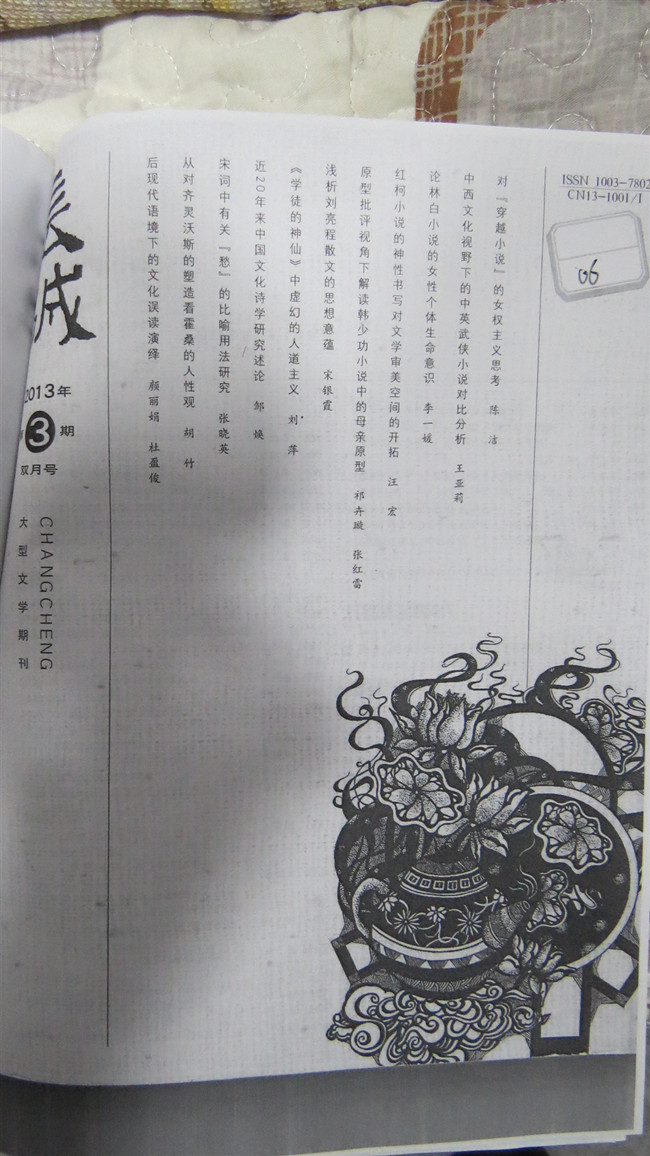 ISSN 1003-7802
CN13-1001/I
06
对『穿越小说』的女权主义思考 陈 洁
中西文化视野下的中英武侠小说对比分析 王亚莉
论林白小说的女性个体生命意识 李一媛
红柯小说的神性书写对文学审美空间的开拓 汪 宏
原型批评视角下解读韩少功小说中的母亲原型 祁卉璇 张红雷
浅析刘亮程散文的思想意蕴 宋银霞
《学徒的神仙》中虚幻的人道主义 刘 萍
近20年来中国文化诗学研究述论 邹 焕
宋词中有关『愁』的比喻用法研究 张晓英
从对齐灵沃斯的塑造看霍桑的人性观 胡 竹
后现代语境下的文化误读演绎 颜丽娟 杜盈俊
长城
2013年
3 期
双月号
CHANGCHENG
大型文学期刊